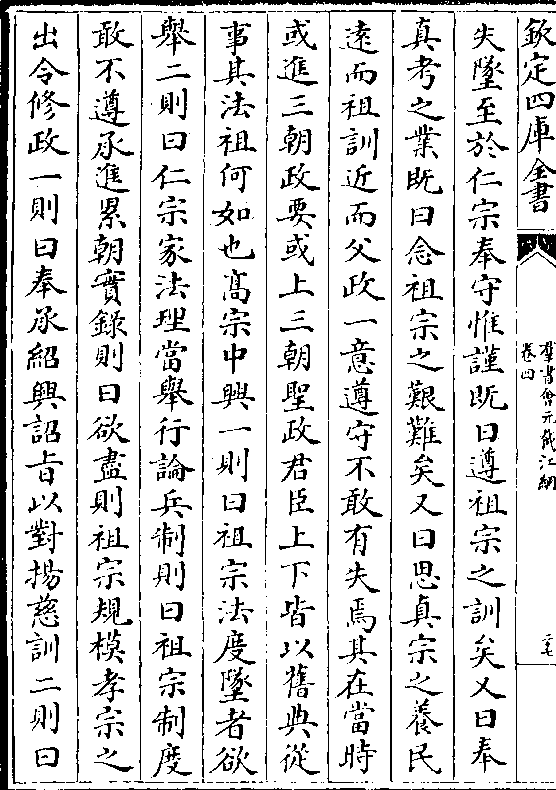 欽定四庫全書
羣書會元截江網
卷四
二七
失墜至於仁宗奉守惟謹既曰遵祖宗之訓矣又曰奉
真考之業既曰念祖宗之艱難矣又曰思真宗之養民
逺而祖訓近而父政一意遵守不敢有失焉其在當時
或進三朝政要或上三朝聖政君臣上下皆以舊典從
事其法祖何如也髙宗中興一則曰祖宗法度墜者欲
舉二則曰仁宗家法理當舉行論兵制則曰祖宗制度
敢不遵承進累朝實録則曰欲盡則祖宗規模孝宗之
出令修政一則曰奉承紹興詔旨以對揚慈訓二則曰